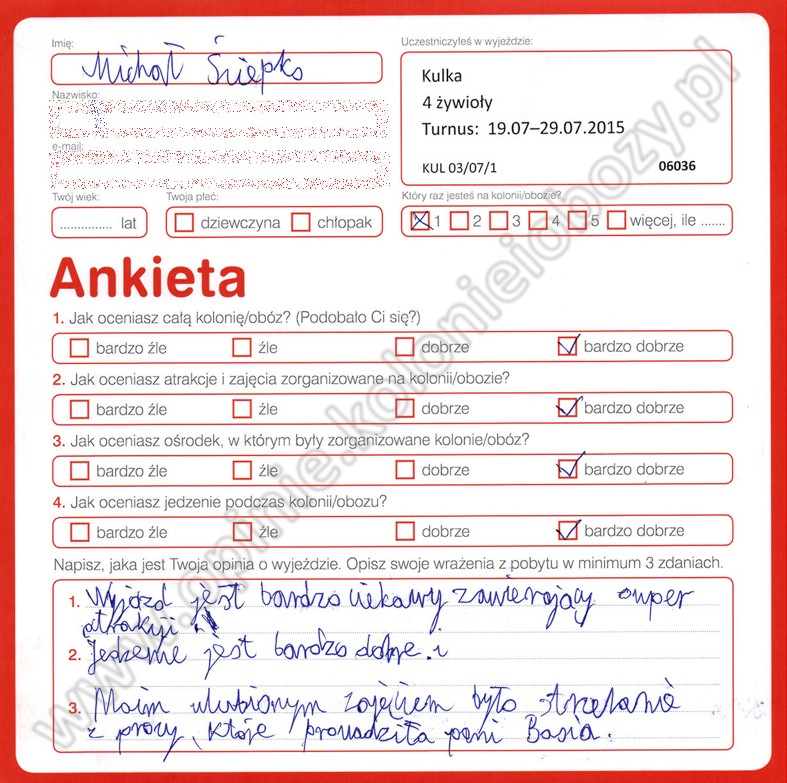 Imię:
Michał Śniepko
Nazwisko:
e-mail:
Twój wiek:
............... lat
Twoja płeć:
dziewczyna chłopak
Uczestniczyłeś w wyjeździe:
Kulka
4 żywioły
Turnus: 19.07–29.07.2015
KUL 03/07/1 06036
Który raz jesteś na kolonii/obozie?
1 2 3 4 5 więcej, ile .......
Ankieta
1. Jak oceniasz całą kolonię/obóz? (Podobało Ci się?)
bardzo źle źle dobrze bardzo dobrze
2. Jak oceniasz atrakcje i zajęcia zorganizowane na kolonii/obozie?
bardzo źle źle dobrze bardzo dobrze
3. Jak oceniasz ośrodek, w którym były zorganizowane kolonie/obóz?
bardzo źle źle dobrze bardzo dobrze
4. Jak oceniasz jedzenie podczas kolonii/obozu?
bardzo źle źle dobrze bardzo dobrze
Napisz, jaka jest Twoja opinia o wyjeździe. Opisz swoje wrażenia z pobytu w minimum 3 zdaniach.
1. Wyjazd jest bardzo ciekawy zawierający super
atrakcji
2. Jedzenie jest bardzo dobre. i
3. Moim ulubionym zajęciem było strzelanie
z procy, które prowadziła pani Basia.
www.opinie.kolonieiobozy.pl